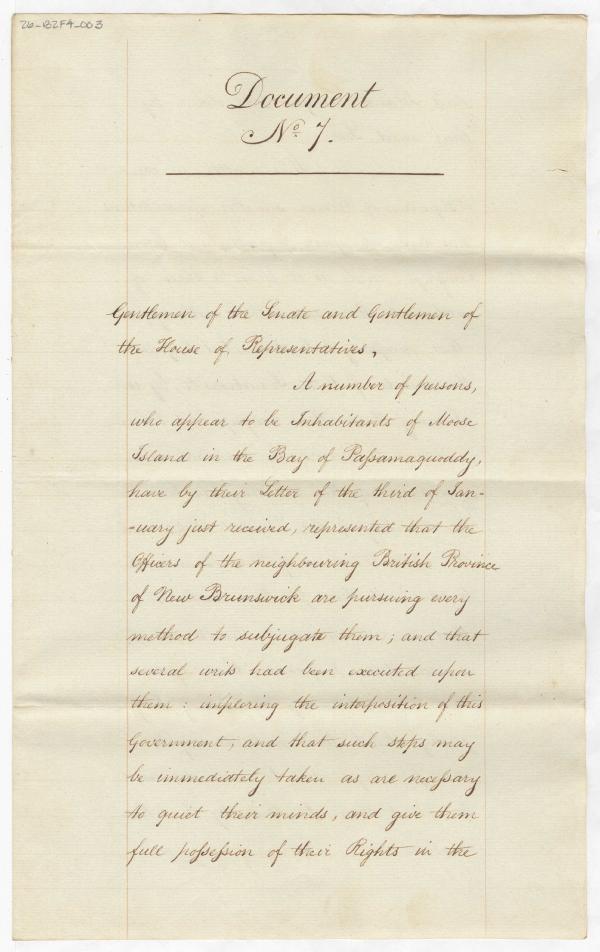 26-B2F4-003
Document
No. 7.
Gentlemen of the Senate and Gentlemen of
the House of Representatives,
A number of persons,
who appear to be Inhabitants of Moose
Island in the Bay of Paſsamaquoddy,
have by their Letter of the third of Jan-
-uary just received, represented that the
Officers of the neighbouring British Province
of New Brunswick are pursuing every
method to subjugate them; and that
several writs had been executed upon
them: imploring the interposition of this
Government, and that such steps may
be immediately taken as are neceſsary
to quiet their minds, and give them
full poſseſsion of their Rights in the